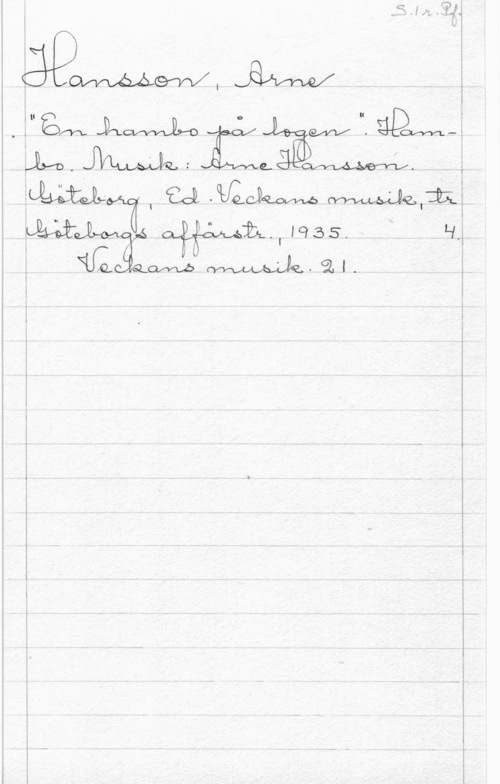 S. 1 r. Pf.
Hansson, Arne
"En hambo på logen". Ham-
bo. Musik: Arne Hansson.
Göteborg, Ed. Veckans musik, tr.
Göteborgs affärstr., 1935. 4.
Veckans musik. 21.